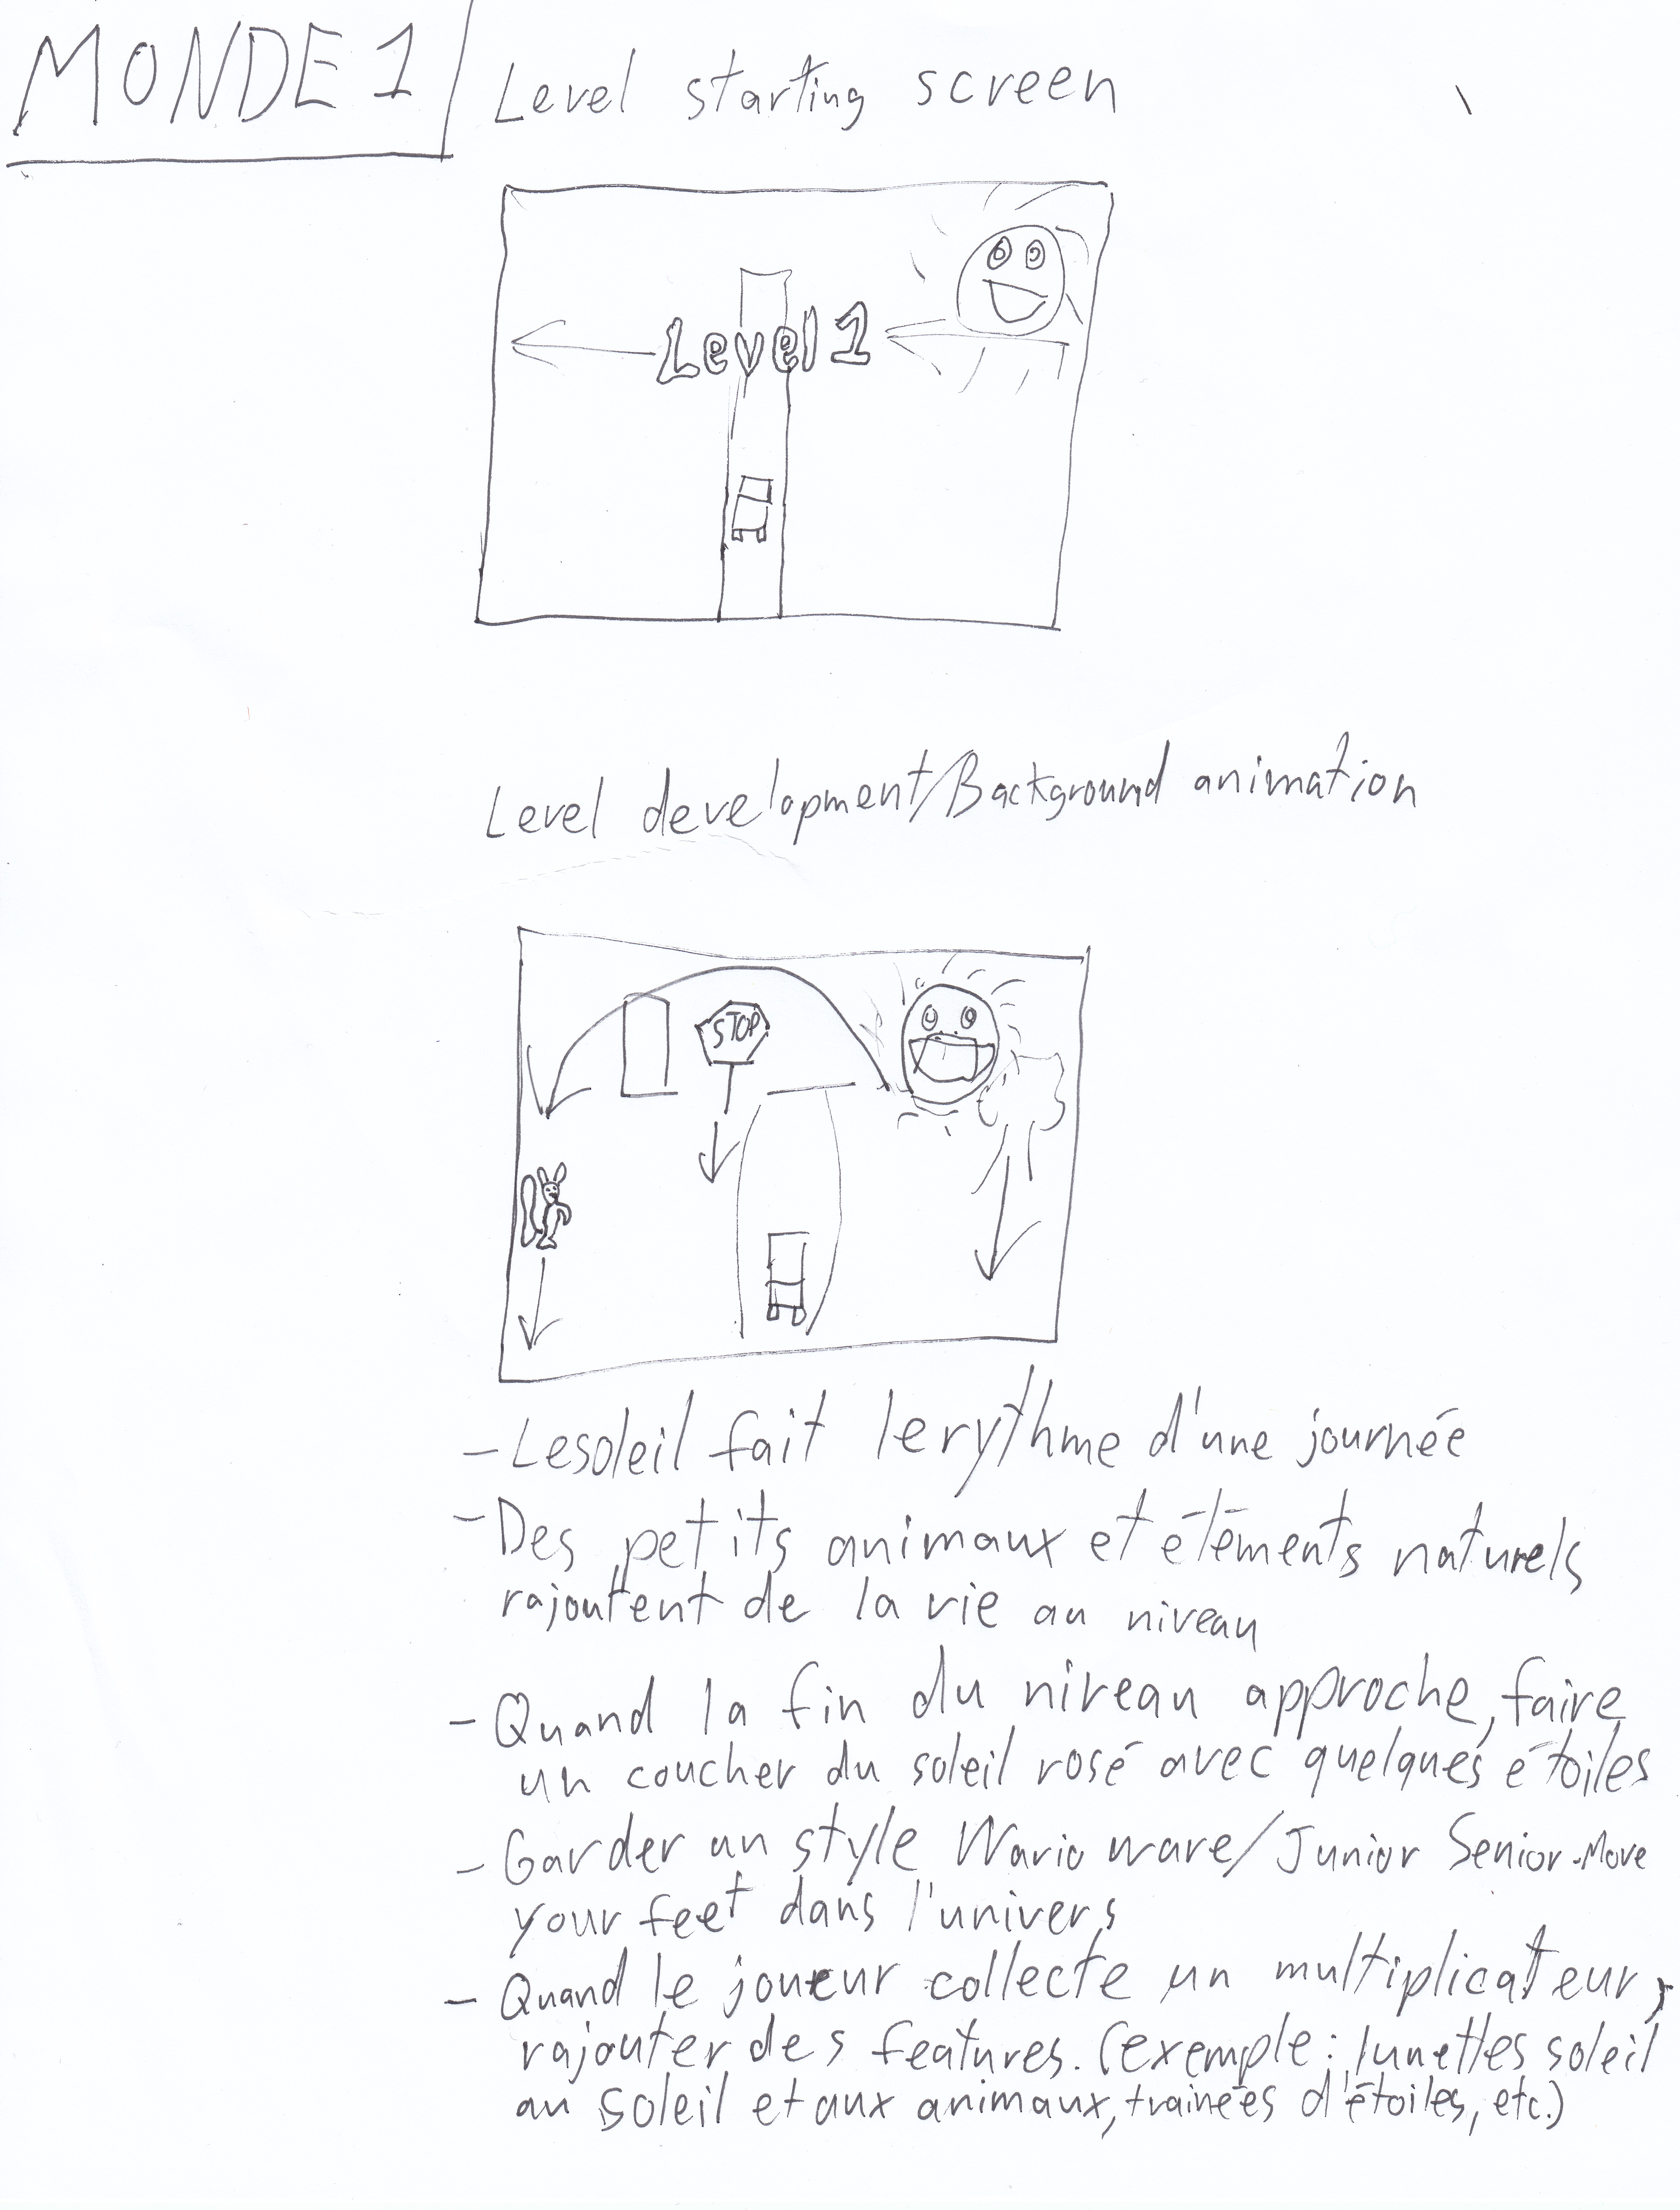 MONDE 1
Level starting screen
Level 1
Level development/Background animation
STOP
- Le soleil fait le rythme d'une journée
- Des petits animaux et éléments naturels
rajoutent de la vie au niveau
- Quand la fin du niveau approche, faire
un coucher du soleil rosé avec quelques étoiles
- Garder un style Wario ware/Junior Senior-Move
your feet dans l'univers
- Quand le joueur collecte un multiplicateur,
rajouter des features. (exemple: lunettes soleil
au soleil et aux animaux, trainées d'étoiles, etc.)